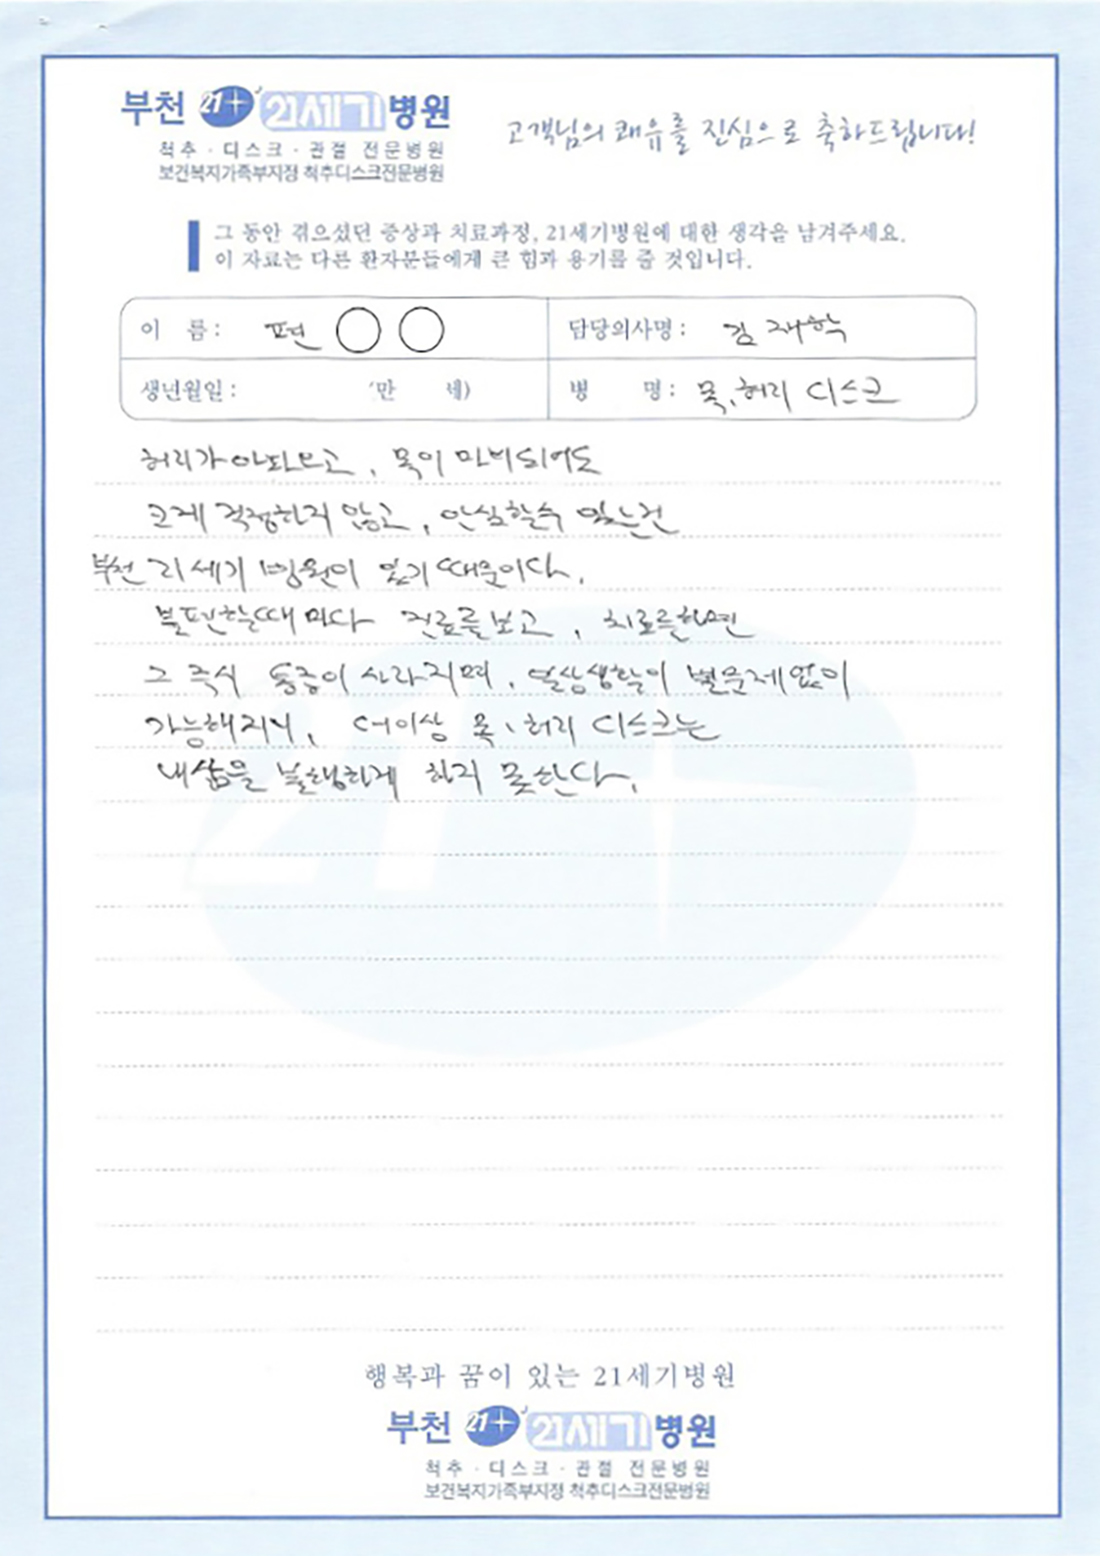 부천 21+ 21세기병원
척추 · 디스크 · 관절 전문병원
보건복지가족부지정 척추디스크전문병원
고객님의 쾌유를 진심으로 축하드립니다!
그 동안 겪으셨던 증상과 치료과정, 21세기병원에 대한 생각을 남겨주세요.
이 자료는 다른 환자분들에게 큰 힘과 용기를 줄 것입니다.
이 름 : 편 ○ ○ 담당의사명 : 김재학
생년월일 : (만 세) 병 명 : 목, 허리 디스크
허리가 아파오고, 목이 마비되어도
크게 걱정하지 않고, 안심할수 있는건
부천 21세기 병원이 있기 때문이다.
불편할때마다 진료를보고, 치료를하면
그 즉시 통증이 사라지며, 일상생활이 별문제없이
가능해지니, 더이상 목, 허리 디스크는
내삶을 불행하게 하지 못한다.
행복과 꿈이 있는 21세기병원
부천 21+ 21세기병원
척추 · 디스크 · 관절 전문병원
보건복지가족부지정 척추디스크전문병원